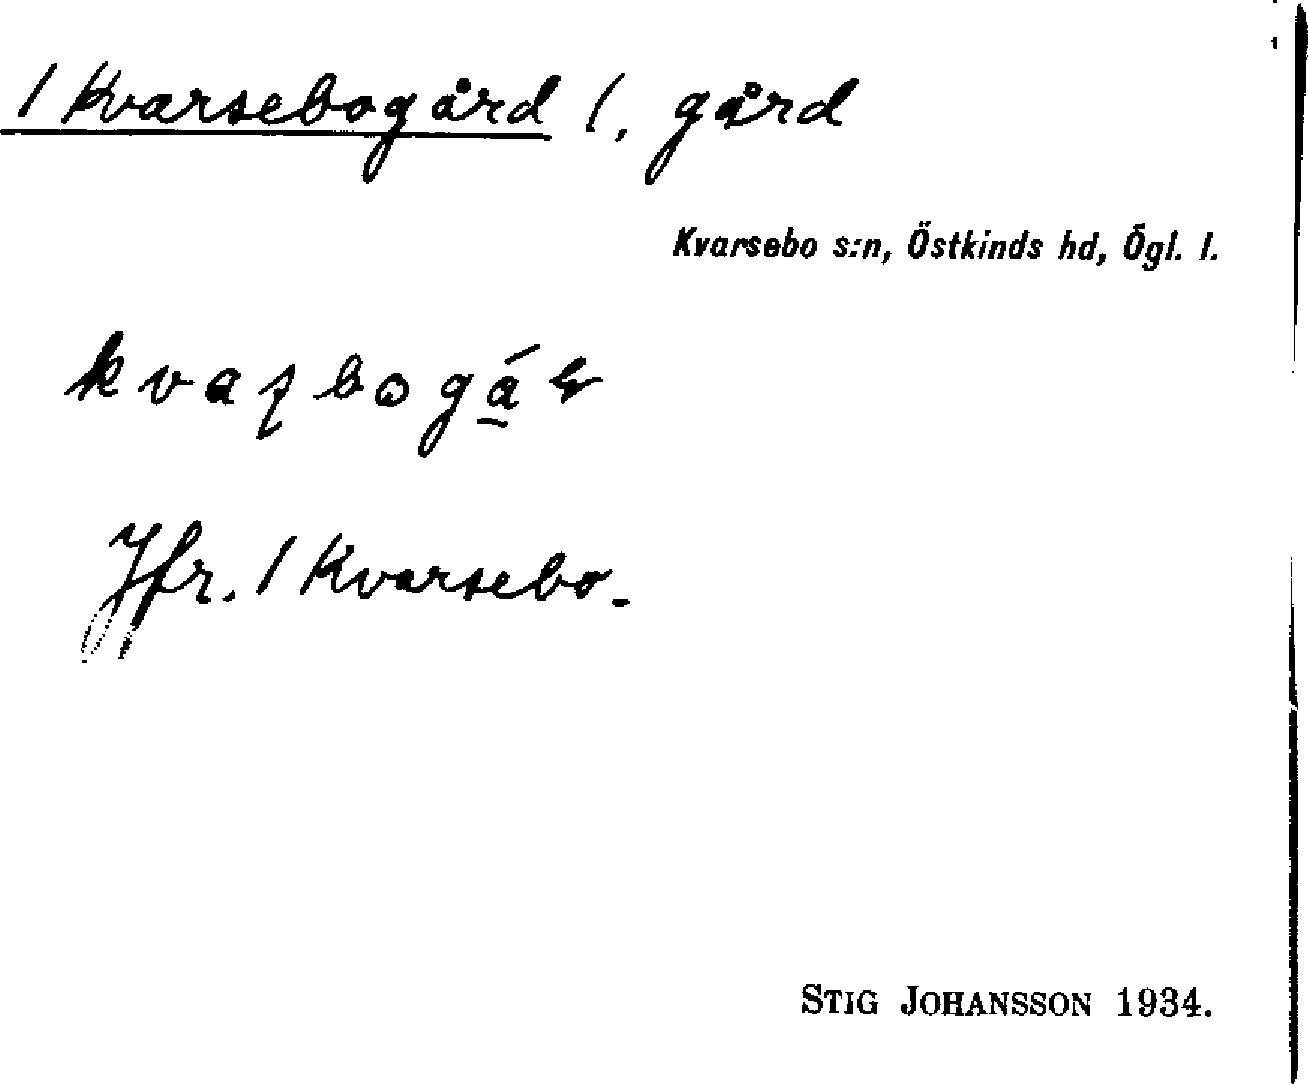 / Kvarsebogård /, gård
Kvarsebo s:n, Östkinds hd, Ögl. l.
Jfr. / Kvarsebo.
STIG JOHANSSON 1934.